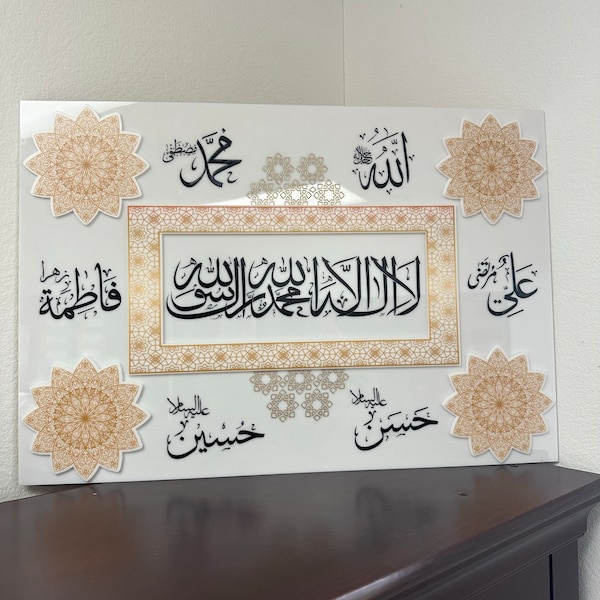 الله جل جلاله
محمد مصطفى
لا إله إلا الله محمد رسول الله
علي مرتضى
فاطمة زهرا
حسن عليه السلام
حسين عليه السلام